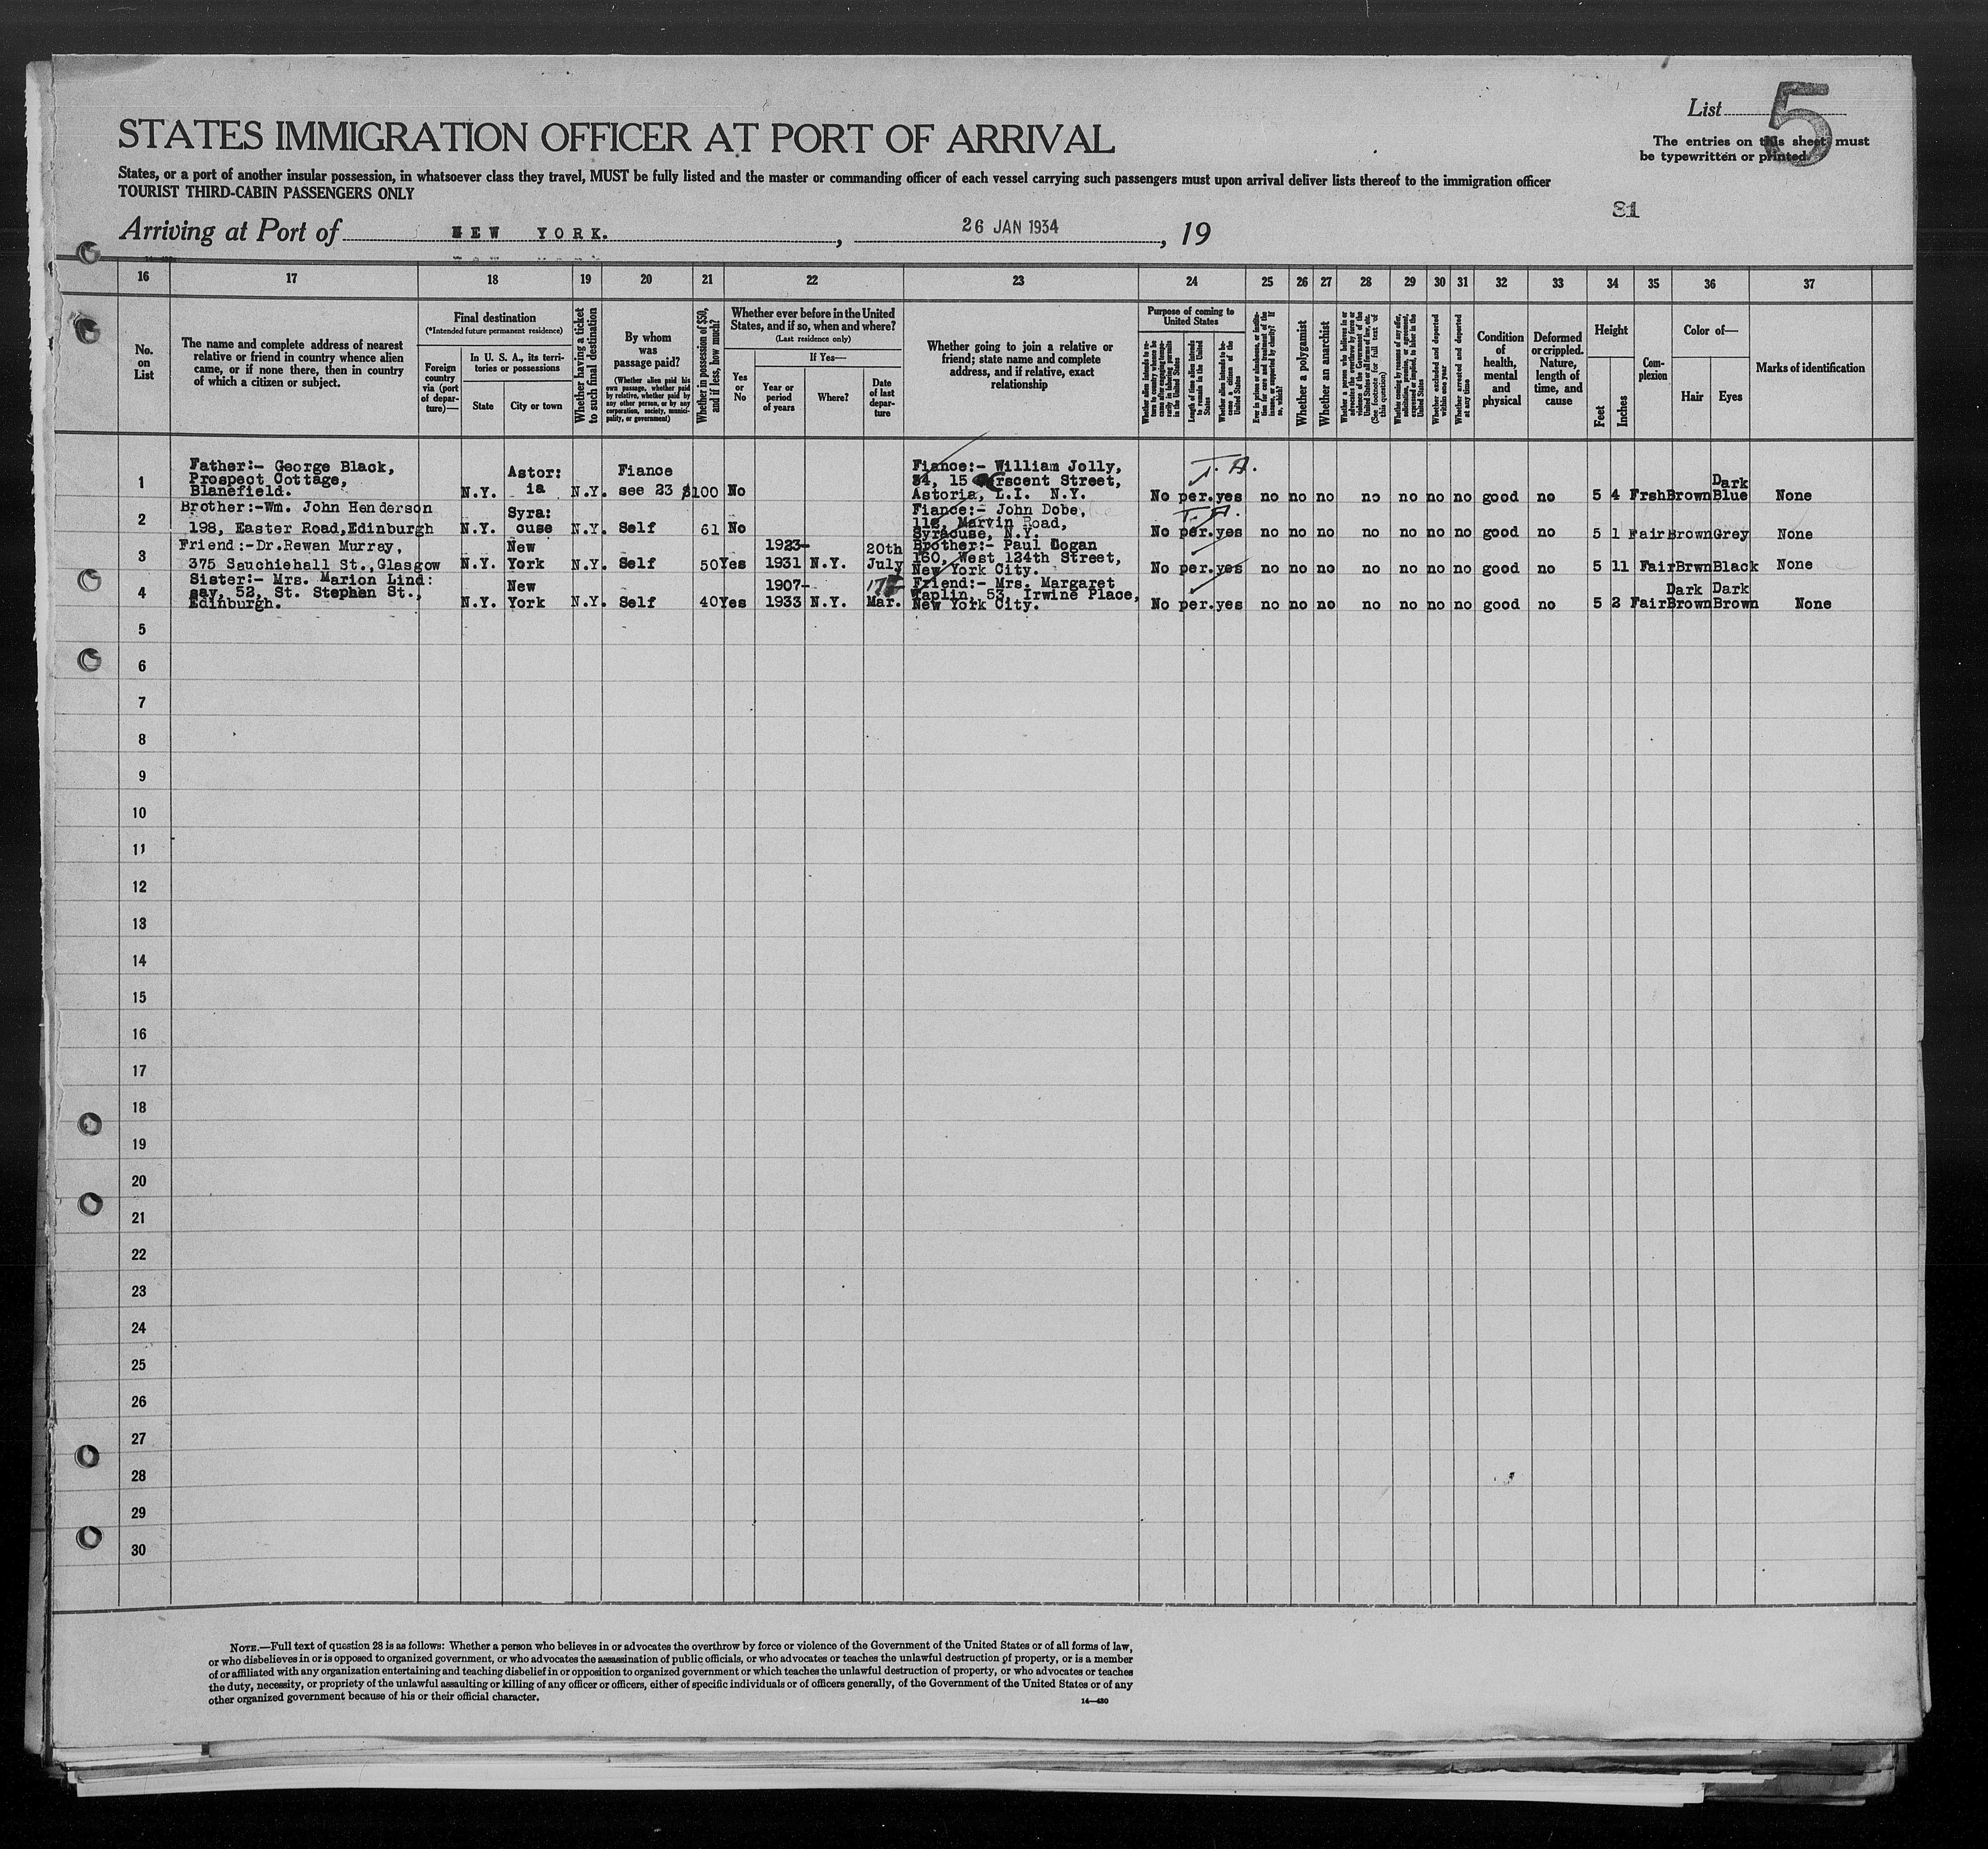 List 5
STATES IMMIGRATION OFFICER AT PORT OF ARRIVAL
The entries on this sheet must
be typewritten or printed.
States, or a port of another insular possession, in whatsoever class they travel, MUST be fully listed and the master or commanding officer of each vessel carrying such passengers must upon arrival deliver lists thereof to the immigration officer
TOURIST THIRD-CABIN PASSENGERS ONLY
81
Arriving at Port of NEW YORK. , 26 JAN 1934 , 19
16 17 18 19 20 21 22 23 24 25 26 27 28 29 30 31 32 33 34 35 36 37
No. on List
The name and complete address of nearest
relative or friend in country whence alien
came, or if none there, then in country
of which a citizen or subject.
Final destination
(*Intended future permanent residence)
Foreign country via (port of departure)—
In U. S. A., its territories or possessions
State
City or town
Whether having a ticket to such final destination
By whom was passage paid?
(Whether alien paid his own passage, whether paid by relative, whether paid by any other person, or by any corporation, society, municipality, or government)
Whether in possession of $50, and if less, how much?
Whether ever before in the United States, and if so, when and where?
(Last residence only)
Yes or No
If Yes—
Year or period of years
Where?
Date of last departure
Whether going to join a relative or
friend; state name and complete
address, and if relative, exact
relationship
Purpose of coming to United States
Whether alien intends to return to country whence he came after engaging temporarily in laboring pursuits in the United States
Length of time alien intends to remain in the United States
Whether alien intends to become a citizen of the United States
Ever in prison or almshouse, or institution for care and treatment of the insane, or supported by charity? If so, which?
Whether a polygamist
Whether an anarchist
Whether a person who believes in or advocates the overthrow by force or violence of the Government of the United States or all forms of law, etc. (See footnote for full text of this question)
Whether coming by reasons of any offer, solicitation, promise, or agreement, expressed or implied, to labor in the United States
Whether excluded and deported within one year
Whether arrested and deported at any time
Condition of health, mental and physical
Deformed or crippled. Nature, length of time, and cause
Height
Feet
Inches
Complexion
Color of—
Hair
Eyes
Marks of identification
1 Father:- George Black,
Prospect Cottage,
Blanefield. N.Y. Astor:
ia N.Y. Fiance
see 23 $100 No Fiance:- William Jolly,
34, 15 rscent Street,
Astoria, L.I. N.Y. T. A. No per. yes no no no no no no no good no 5 4 Frsh Brown Dark
Blue None
2 Brother:-Wm. John Henderson
198, Easter Road,Edinburgh N.Y. Syra:
cuse N.Y. Self 61 No Fiance:- John Dobe,
Marvin Road,
Syracuse, N.Y. T. A. No per. yes no no no no no no no good no 5 1 Fair Brown Grey None
3 Friend:-Dr.Rewan Murray,
375 Sauchiehall St.,Glasgow N.Y. New
York N.Y. Self 50 Yes 1923-
1931 N.Y. 20th
July Brother:- Paul Cogan
160, West 124th Street,
New York City. No per. yes no no no no no no no good no 5 11 Fair Brwn Black None
4 Sister:- Mrs. Marion Lind:
say, 52, St. Stephen St.,
Edinburgh. N.Y. New
York N.Y. Self 40 Yes 1907-
1933 N.Y. Mar. Friend:- Mrs. Margaret
Taplin, 53, Irwine Place,
New York City. No per. yes no no no no no no no good no 5 2 Fair Dark
Brown Dark
Brown None
5
6
7
8
9
10
11
12
13
14
15
16
17
18
19
20
21
22
23
24
25
26
27
28
29
30
NOTE.—Full text of question 28 is as follows: Whether a person who believes in or advocates the overthrow by force or violence of the Government of the United States or of all forms of law,
or who disbelieves in or is opposed to organized government, or who advocates the assassination of public officials, or who advocates or teaches the unlawful destruction of property, or is a member
of or affiliated with any organization entertaining and teaching disbelief in or opposition to organized government or which teaches the unlawful destruction of property, or who advocates or teaches
the duty, necessity, or propriety of the unlawful assaulting or killing of any officer or officers, either of specific individuals or of officers generally, of the Government of the United States or of any
other organized government because of his or their official character.
14—430